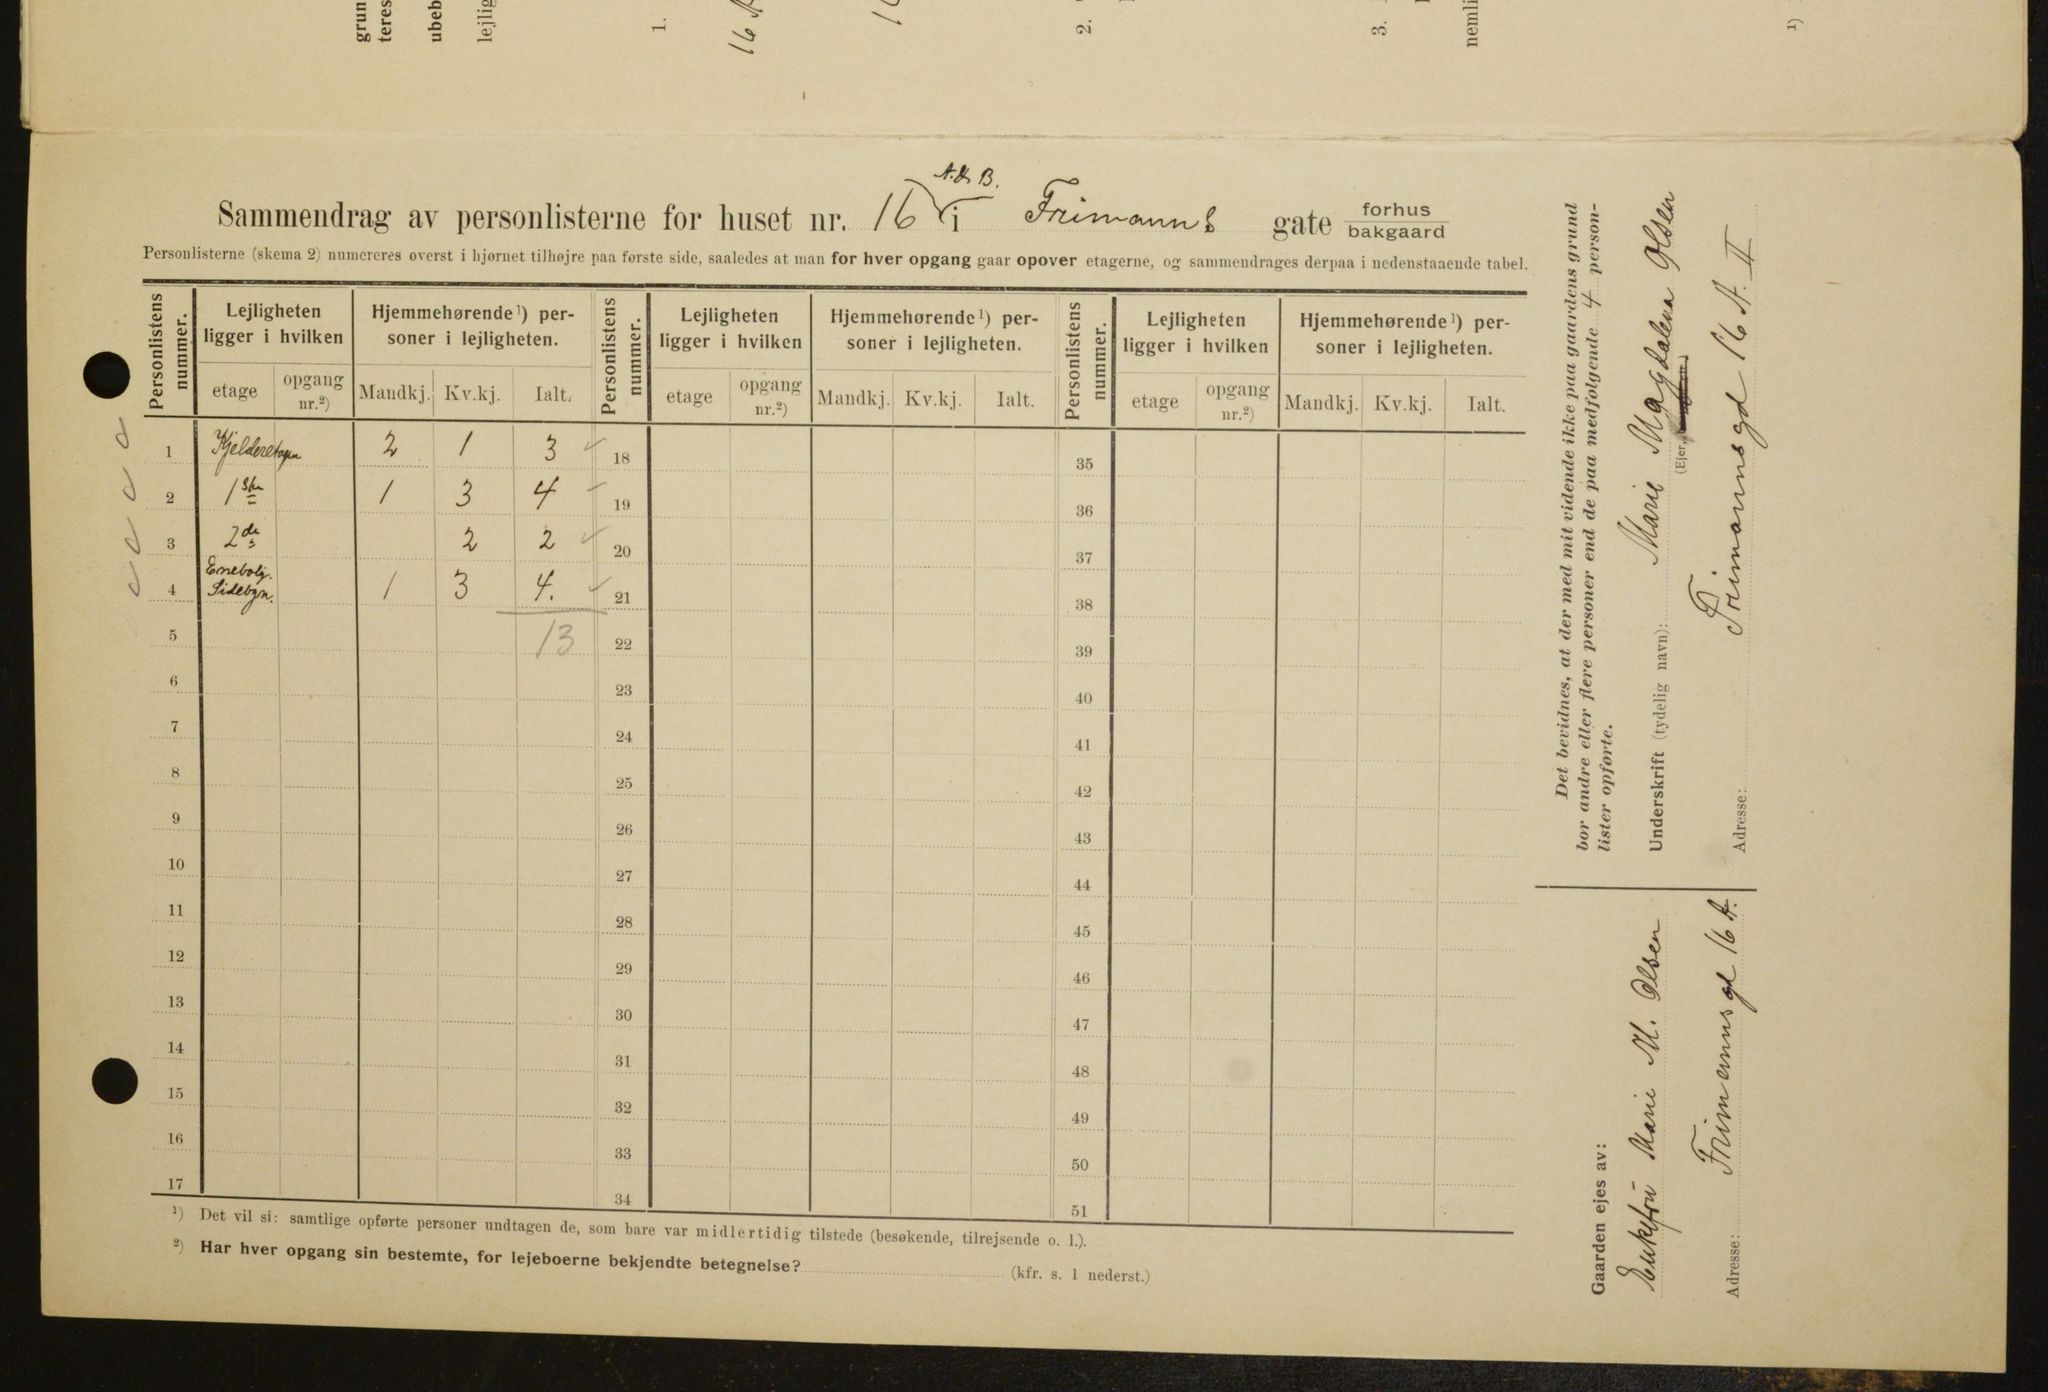 grun
teres
ubeb
lejlig
1.
16 A
2.
3.
nemli
1)
A. & B.
Sammendrag av personlisterne for huset nr. 16 i Frimanns gate forhus bakgaard
Personlisterne (skema 2) numereres øverst i hjørnet tilhøjre paa første side, saaledes at man for hver opgang gaar opover etagerne, og sammendrages derpaa i nedenstaaende tabel.
Personlistens nummer. Lejligheten ligger i hvilken Hjemmehørende¹) personer i lejligheten. Personlistens nummer. Lejligheten ligger i hvilken Hjemmehørende¹) personer i lejligheten. Personlistens nummer. Lejligheten ligger i hvilken Hjemmehørende¹) personer i lejligheten.
etage opgang nr.²) Mandkj. Kv.kj. Ialt. etage opgang nr.²) Mandkj. Kv.kj. Ialt. etage opgang nr.²) Mandkj. Kv.kj. Ialt.
1 Kjelderetagen 2 1 3 18 35
2 1ste 1 3 4 19 36
3 2de 2 2 20 37
4 Enebolg. Sidebgn. 1 3 4. 21 38
5 13 22 39
6 23 40
7 24 41
8 25 42
9 26 43
10 27 44
11 28 45
12 29 46
13 30 47
14 31 48
15 32 49
16 33 50
17 34 51
¹) Det vil si: samtlige opførte personer undtagen de, som bare var midlertidig tilstede (besøkende, tilrejsende o. l.).
²) Har hver opgang sin bestemte, for lejeboerne bekjendte betegnelse? (kfr. s. 1 nederst.)
Det bevidnes, at der med mit vidende ikke paa gaardens grund
bor andre eller flere personer end de paa medfølgende 4 person-
lister opførte.
Underskrift (tydelig navn): Marie Magdalena Olsen
(Ejer,
Adresse: Frimannsgd 16 A. II
Gaarden ejes av:
Enkefru Marie M. Olsen
Adresse: Frimannsgd 16 A.